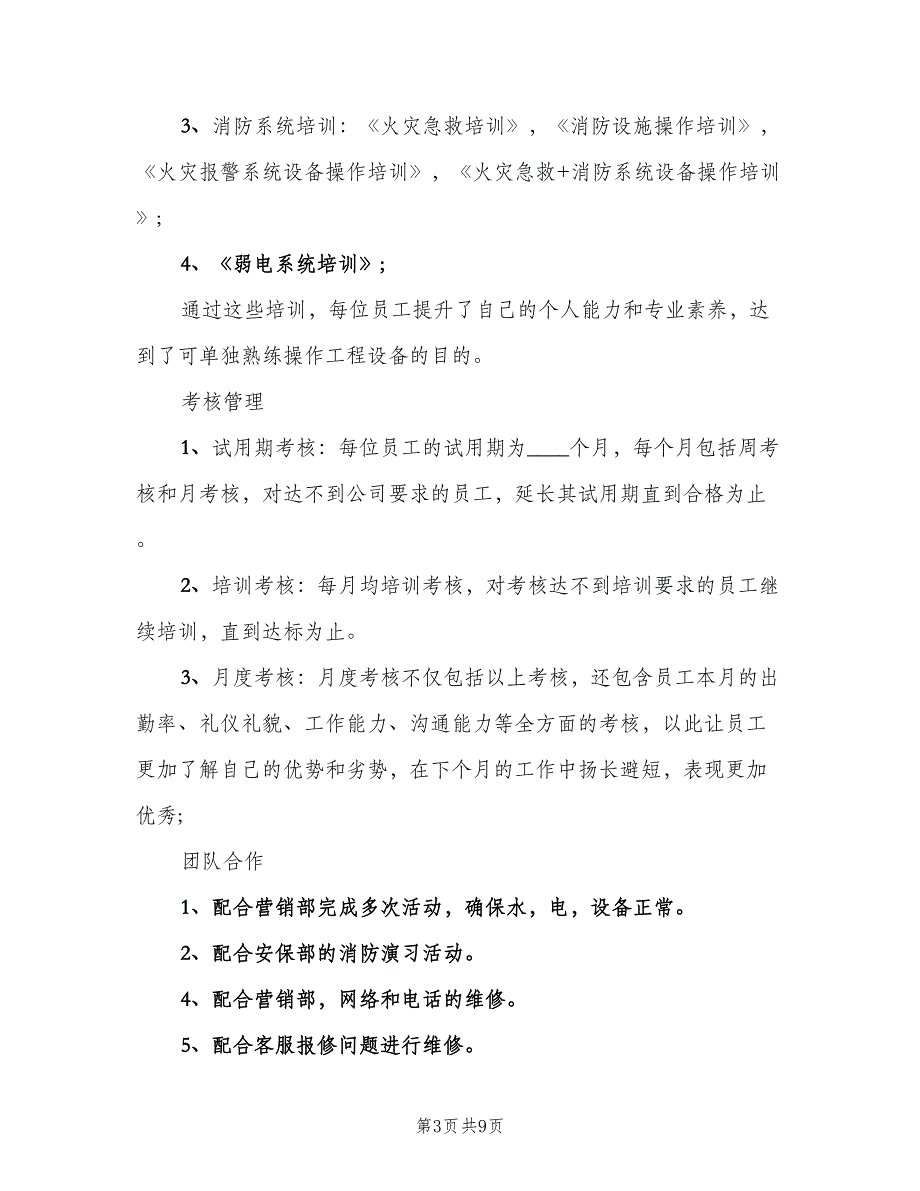 3、消防系统培训：《火灾急救培训》，《消防设施操作培训》，
《火灾报警系统设备操作培训》，《火灾急救+消防系统设备操作培训
》；
4、《弱电系统培训》；
通过这些培训，每位员工提升了自己的个人能力和专业素养，达
到了可单独熟练操作工程设备的目的。
考核管理
1、试用期考核：每位员工的试用期为____个月，每个月包括周考
核和月考核，对达不到公司要求的员工，延长其试用期直到合格为止
。
2、培训考核：每月均培训考核，对考核达不到培训要求的员工继
续培训，直到达标为止。
3、月度考核：月度考核不仅包括以上考核，还包含员工本月的出
勤率、礼仪礼貌、工作能力、沟通能力等全方面的考核，以此让员工
更加了解自己的优势和劣势，在下个月的工作中扬长避短，表现更加
优秀;
团队合作
1、配合营销部完成多次活动，确保水，电，设备正常。
2、配合安保部的消防演习活动。
4、配合营销部，网络和电话的维修。
5、配合客服报修问题进行维修。
第3页 共9页